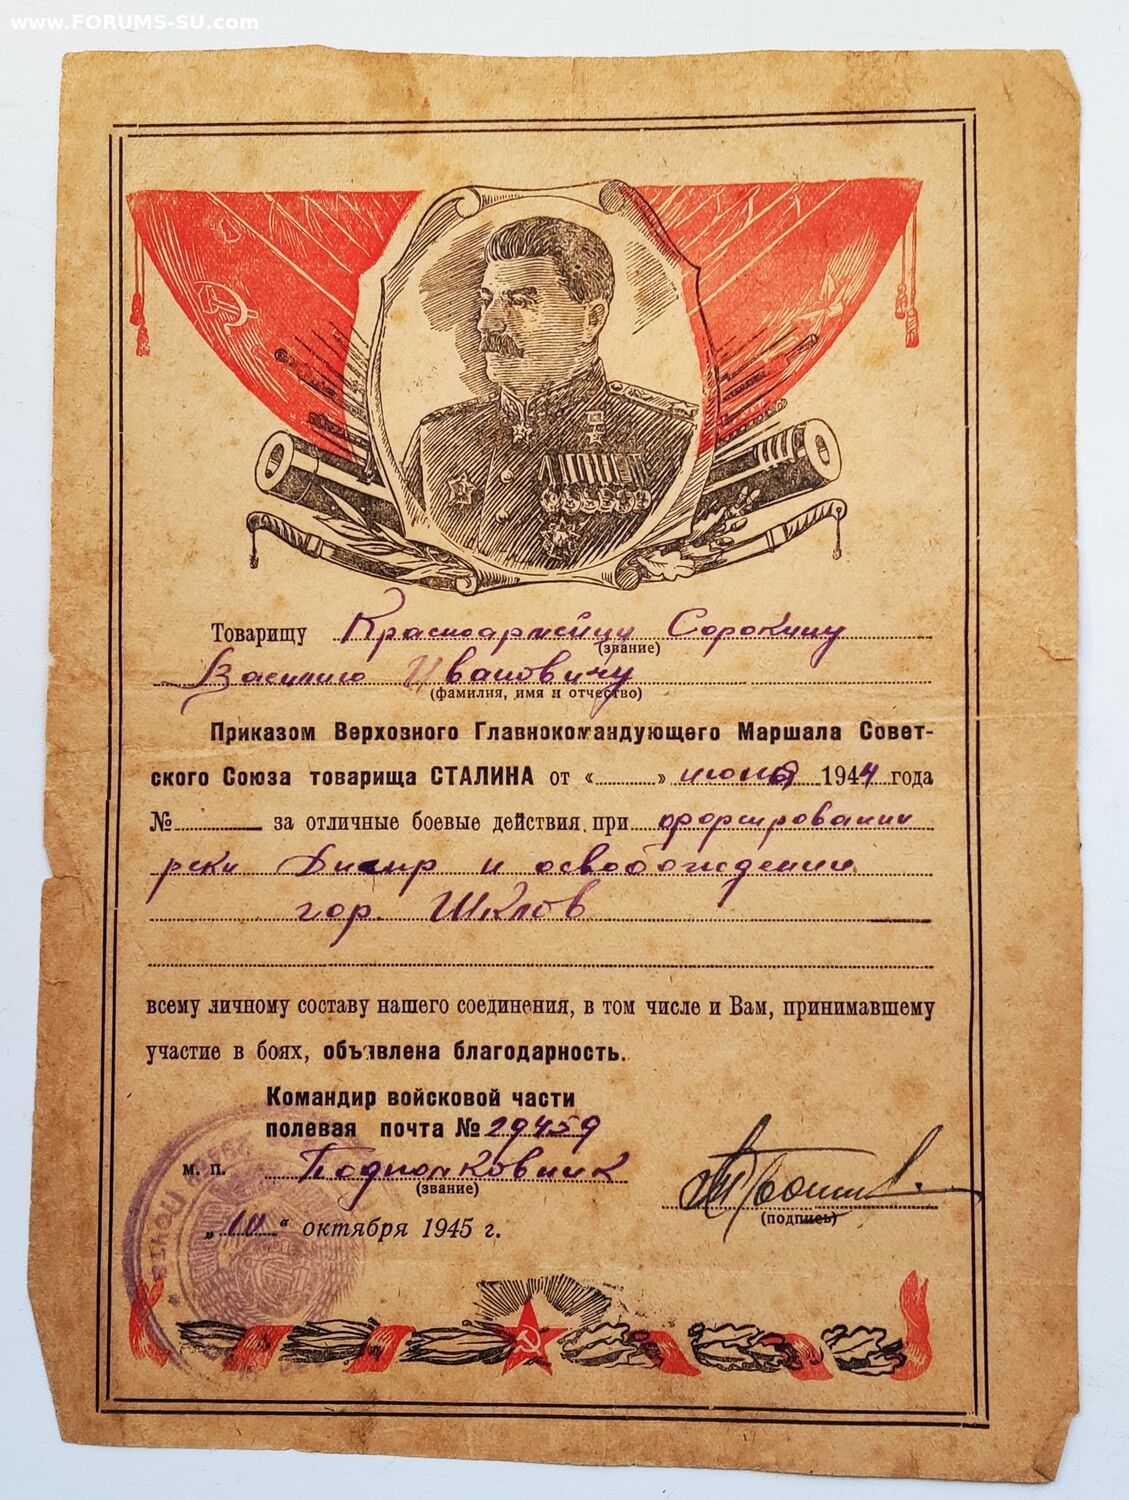 www.FORUMS-SU.com
Товарищу Красноармейцу Сорокину
(звание)
Василию Ивановичу
(фамилия, имя и отчество)
Приказом Верховного Главнокомандующего Маршала Совет-
ского Союза товарища СТАЛИНА от « » июня 1944 года
№ за отличные боевые действия при форсировании
реки Днепр и освобождении
гор. Шклов
всему личному составу нашего соединения, в том числе и Вам, принимавшему
участие в боях, объявлена благодарность.
Командир войсковой части
полевая почта № 29459
м. п. Подполковник
(звание)
(подпись)
„10“ октября 1945 г.